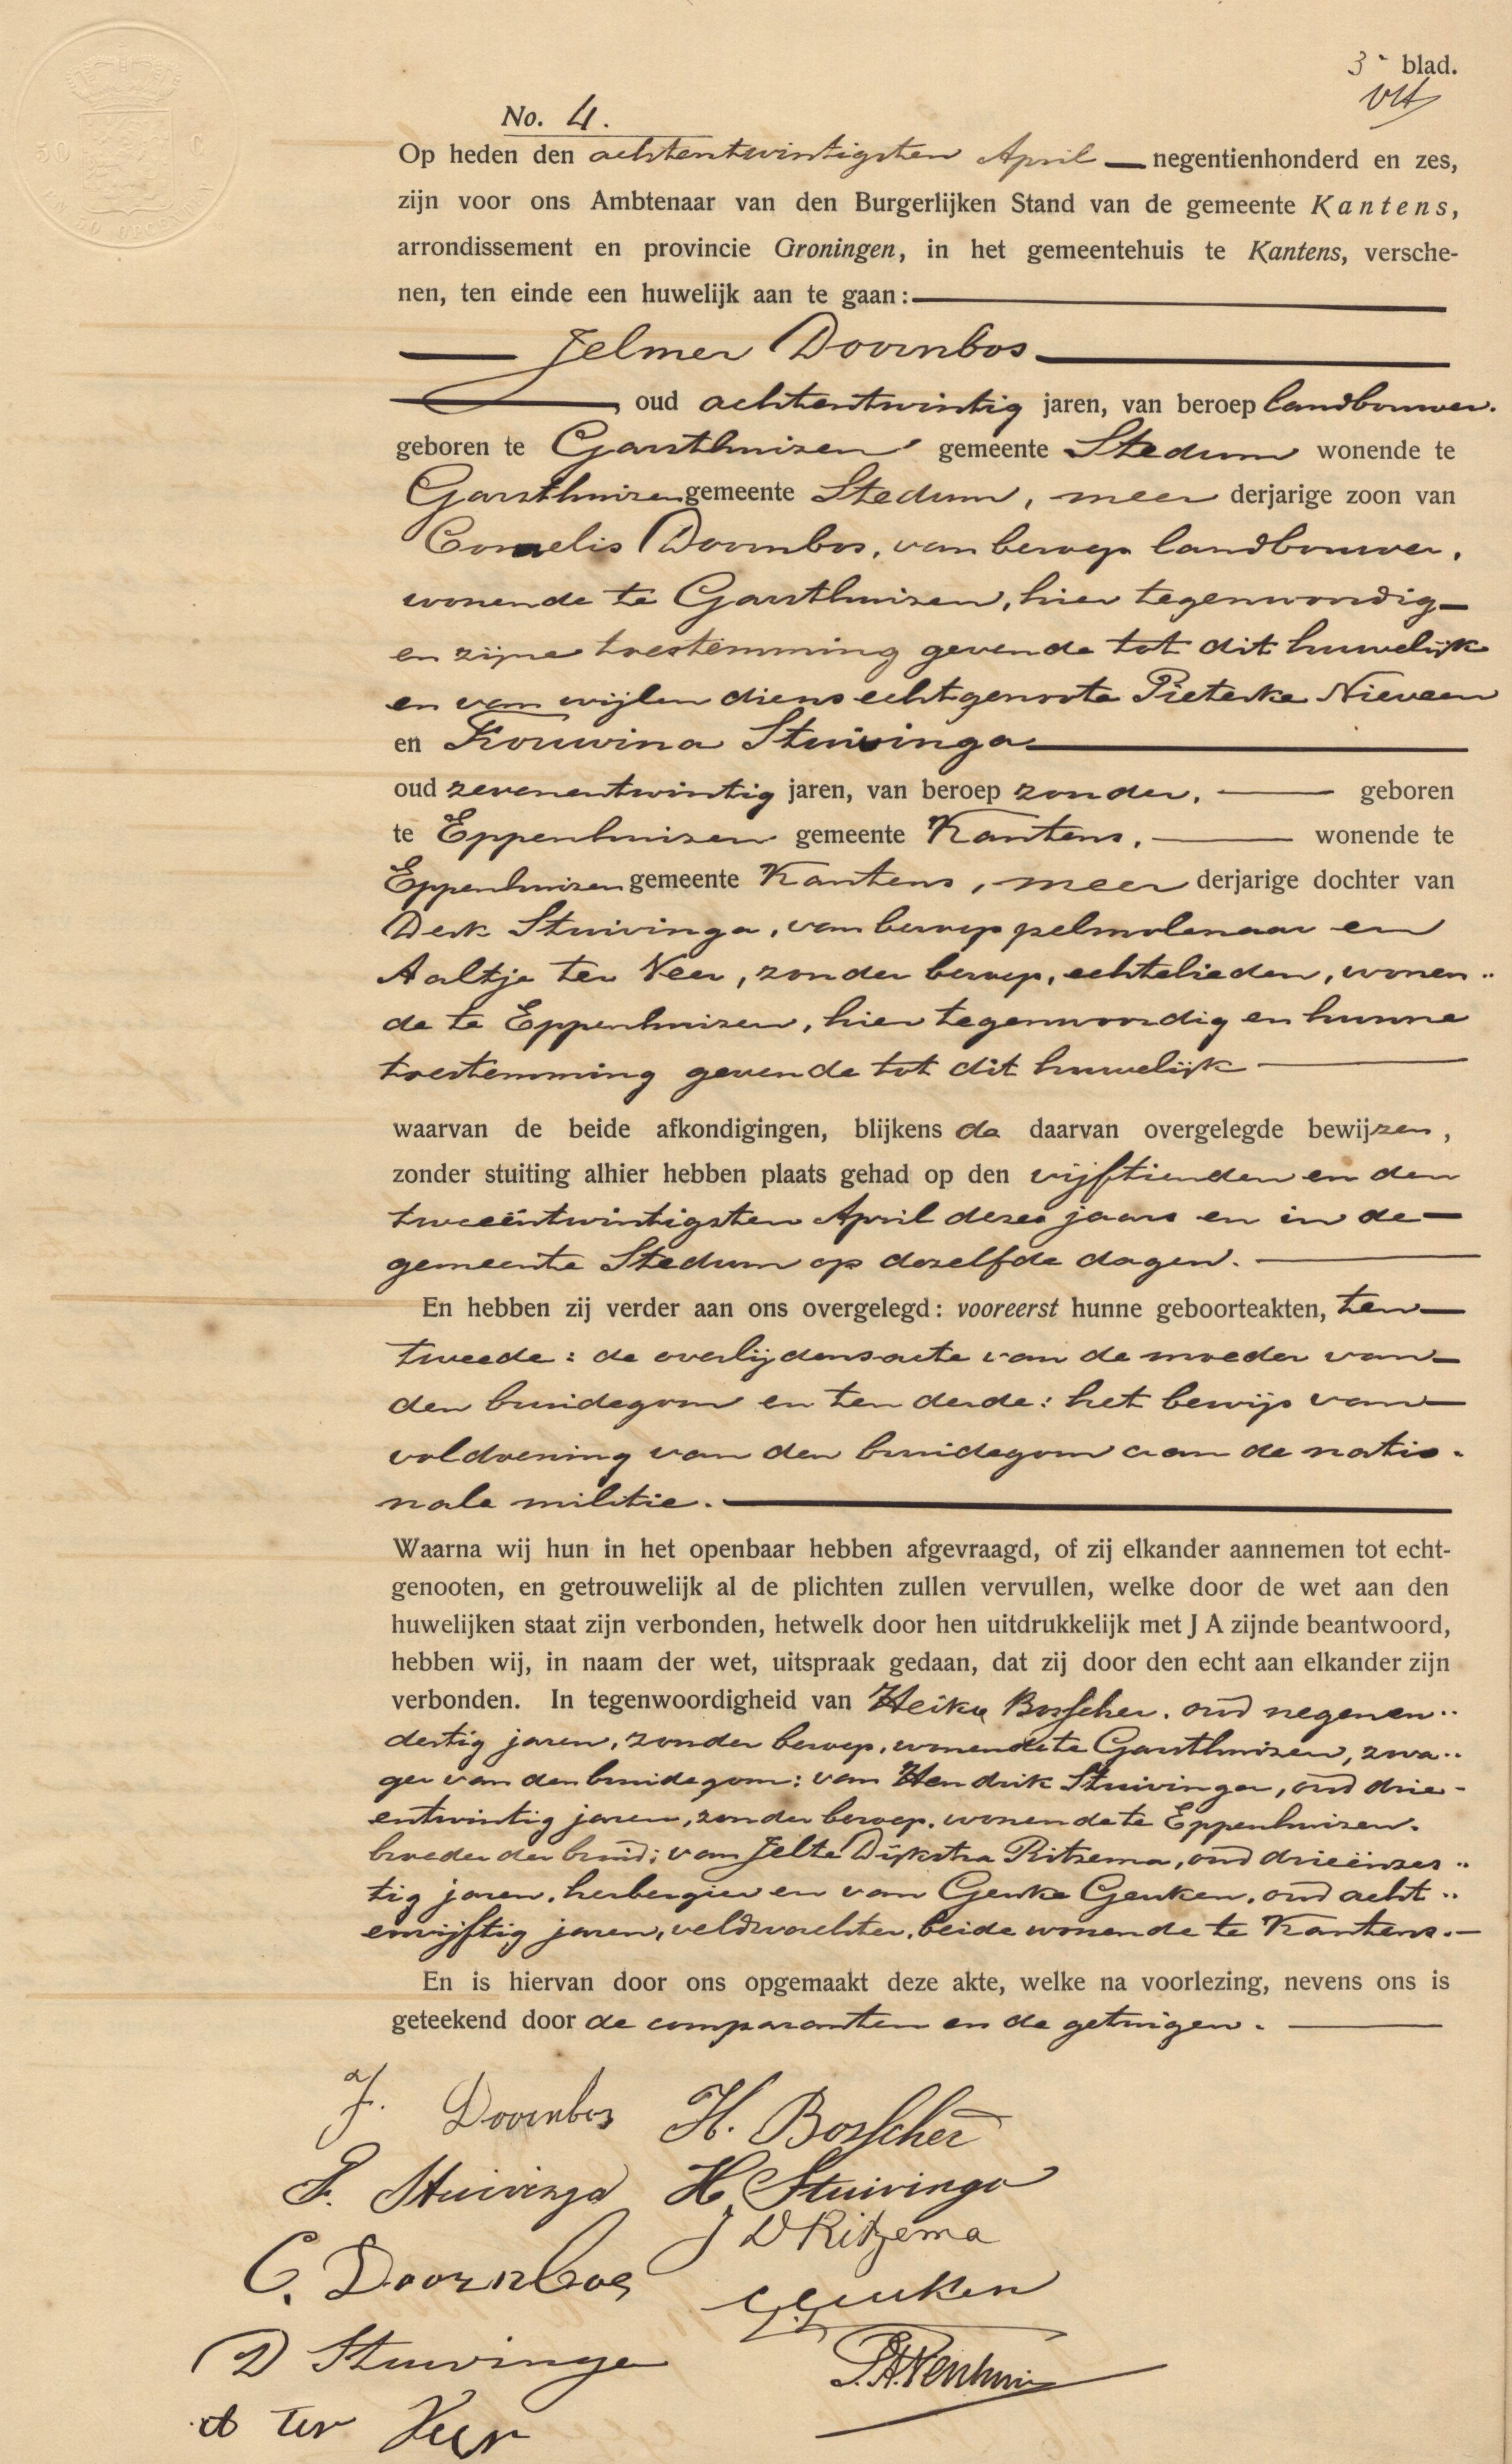 3e blad.
No. 4.
Op heden den achtentwintigsten April negentienhonderd en zes,
zijn voor ons Ambtenaar van den Burgerlijken Stand van de gemeente Kantens,
arrondissement en provincie Groningen, in het gemeentehuis te Kantens, versche-
nen, ten einde een huwelijk aan te gaan:
Jelmer Doornbos
oud achtentwintig jaren, van beroep landbouwer.
geboren te Garsthuizen gemeente Stedum wonende te
Garsthuizen gemeente Stedum, meer derjarige zoon van
Cornelis Doornbos, van beroep landbouwer,
wonende te Garsthuizen, hier tegenwoordig
en zijne toestemming gevende tot dit huwelijk
en van wijlen diens echtgenoote Pieterke Nieveen
en Frouwina Stuivinga
oud zevenentwintig jaren, van beroep zonder, geboren
te Eppenhuizen gemeente Kantens, wonende te
Eppenhuizen gemeente Kantens, meer derjarige dochter van
Derk Stuivinga, van beroep pelmolenaar en
Aaltje ter Veer, zonder beroep, echtelieden, wonen-
de te Eppenhuizen, hier tegenwoordig en hunne
toestemming gevende tot dit huwelijk
waarvan de beide afkondigingen, blijkens de daarvan overgelegde bewijzen,
zonder stuiting alhier hebben plaats gehad op den vijftienden en den
tweeëntwintigsten April dezes jaars en in de
gemeente Stedum op dezelfde dagen.
En hebben zij verder aan ons overgelegd: vooreerst hunne geboorteakten, ten
tweede: de overlijdensacte van de moeder van
den bruidegom en ten derde: het bewijs van
voldoening van den bruidegom aan de natio-
nale militie.
Waarna wij hun in het openbaar hebben afgevraagd, of zij elkander aannemen tot echt-
genooten, en getrouwelijk al de plichten zullen vervullen, welke door de wet aan den
huwelijken staat zijn verbonden, hetwelk door hen uitdrukkelijk met J A zijnde beantwoord,
hebben wij, in naam der wet, uitspraak gedaan, dat zij door den echt aan elkander zijn
verbonden. In tegenwoordigheid van Heiko Bosscher, oud negenen-
dertig jaren, zonder beroep, wonende te Garsthuizen, zwa-
ger van den bruidegom: van Hendrik Stuivinga, oud drie-
entwintig jaren, zonder beroep, wonende te Eppenhuizen.
broeder der bruid; van Jelte Dijkstra Ritzema, oud drieënzes-
tig jaren, herbergier en van Geuke Geuken, oud acht-
envijftig jaren, veldwachter, beide wonende te Kantens.
En is hiervan door ons opgemaakt deze akte, welke na voorlezing, nevens ons is
geteekend door de comparanten en de getuigen.
J. Doornbos H. Bosscher
F. Stuivinga H Stuivinga
J D Ritzema
C. Doornbos
G Geuken
D Stuivinga
A ter Veer